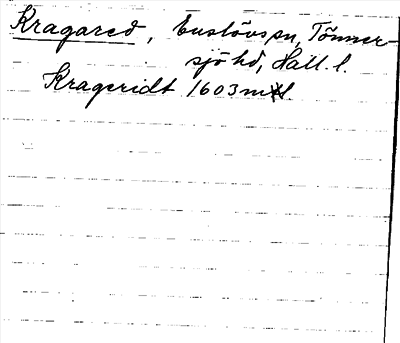 Kragared, Enslövs sn, Tönner-
sjö hd, Hall. l.
Krageridt 1603